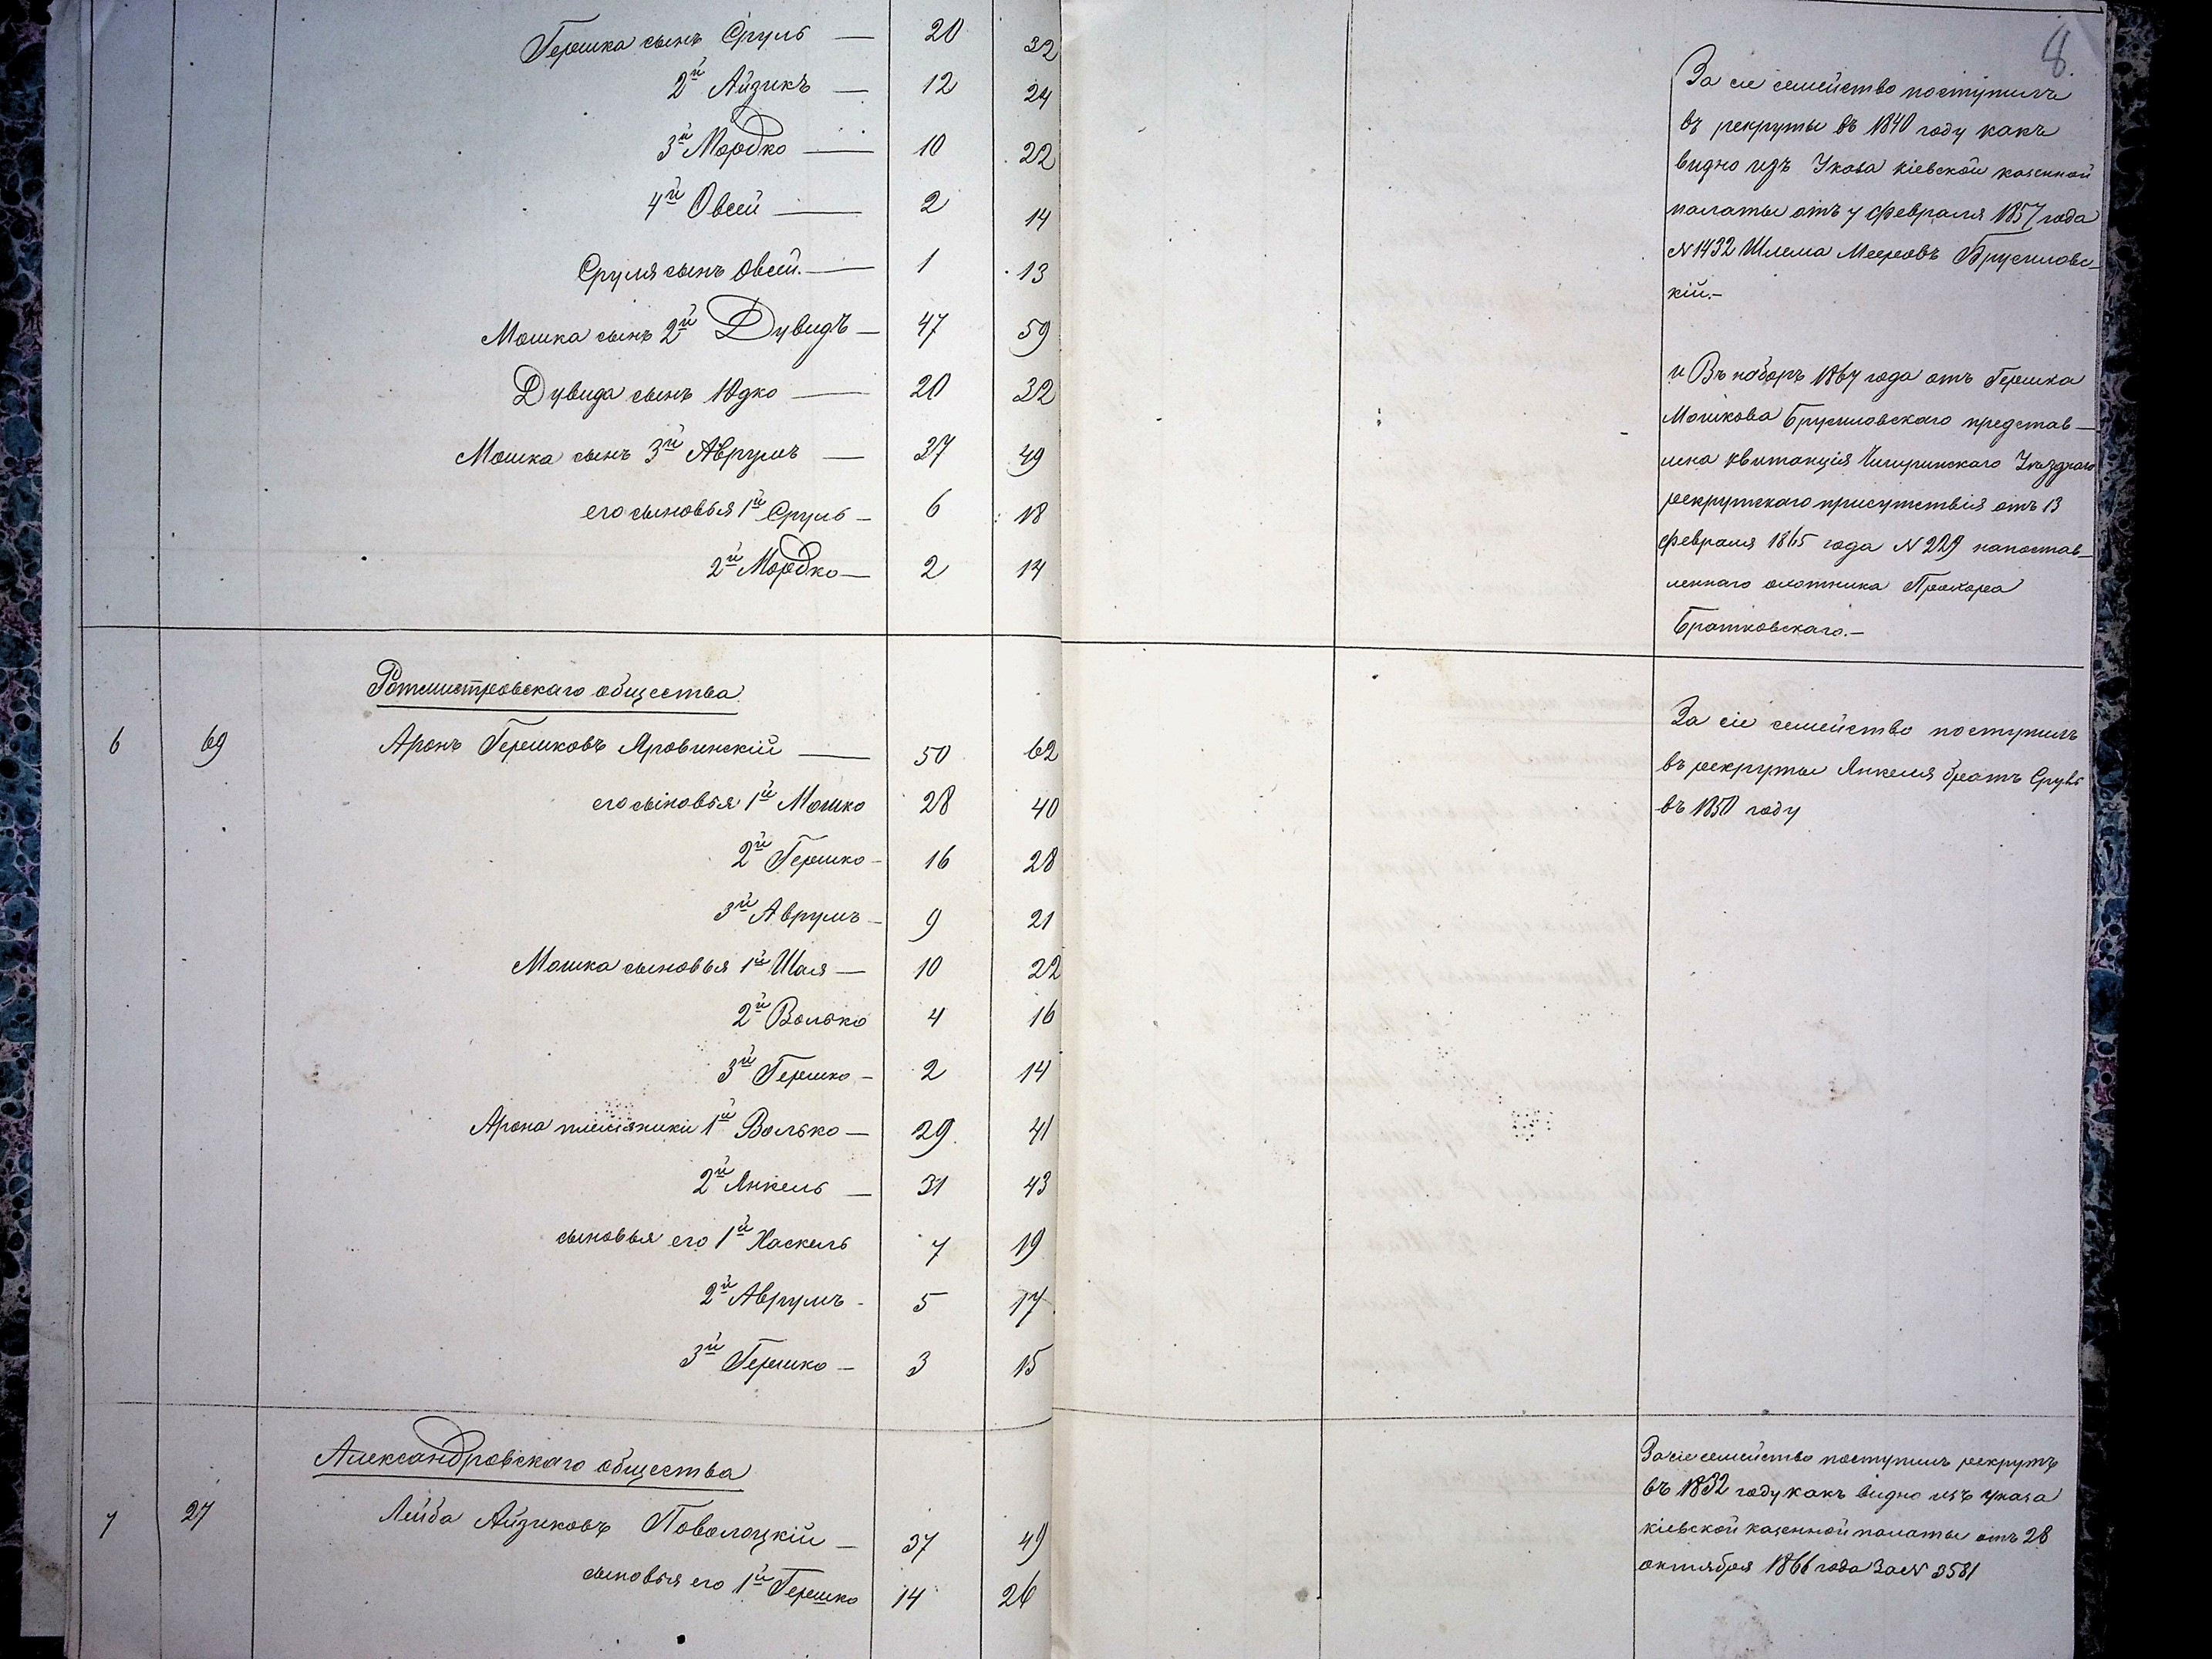 8.
Гершка сынъ Сруль — 20 32
2й Айзикъ — 12 24
3й Мордко — 10 22
4й Овсей — 2 14
Сруля сынъ Овсей — 1 13
Мошка сынъ 2й Дувидъ — 47 59
Дувида сынъ Юдко — 20 32
Мошка сынъ 3й Аврумъ — 27 49
его сыновья 1й Сруль — 6 18
2й Мордко — 2 14
За сіе семейство поступилъ
въ рекруты въ 1840 году какъ
видно изъ Указа кіевской казенной
палаты отъ 7 февраля 1857 года
№ 1432 Шлема Мееровъ Брусиловс-
кій.—
и Въ наборъ 1864 года отъ Гершка
Мошкова Брусиловскаго представ-
лена квитанція Чигиринскаго Уѣзднаго
рекрутскаго присутствія отъ 13
февраля 1865 года № 229 напостав-
леннаго охотника Прохора
Братковскаго.—
Ротмистровскаго общества
6 69 Аронъ Гершковъ Яровинскій — 50 62
его сыновья 1й Мошко 28 40
2й Гершко - 16 28
3й Аврумъ - 9 21
Мошка сыновья 1й Шая — 10 22
2й Волько 4 16
3й Гершко - 2 14
Арона племяники 1й Волько — 29 41
2й Янкель — 31 43
сыновья его 1й Хаскель 7 19
2й Аврумъ - 5 17
3й Гершко — 3 15
За сіе семейство поступилъ
въ рекруты Янкеля братъ Сруль
въ 1850 году
Александровскаго общества
7 27 Лейба Айзиковъ Поволоцкій — 37 49
сыновья его 1й Гершко 14 26
За сіе семейство поступилъ рекрутъ
въ 1832 году какъ видно изъ указа
кіевской казенной палаты отъ 28
октября 1866 года За № 3581